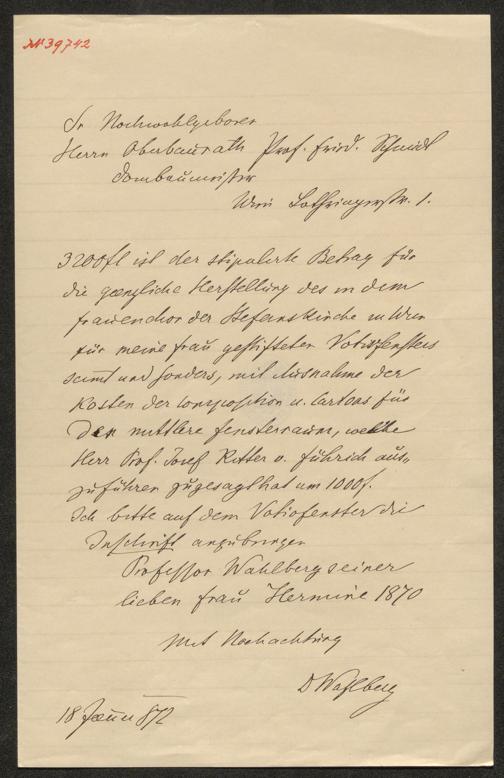 № 39742
Sr Hochwohlgeboren
Herrn Oberbaurath Prof. Fried. Schmidt
Dombaumeister
Wien Lothringerstr. 1.
3200fl ist der stipulirte Betrag für
die gänzliche Herstellung des in dem
Frauenchor der Stefanskirche in Wien
für meine Frau gestifteten Votivfensters
samt und sonders, mit Ausnahme der
Kosten der Composition u. Cartons für
den mittlere Fensterraum, welche
Herr Prof. Josef Ritter v. Führich aus-
zuführen zugesagt hat um 1000f.
Ich bitte auf dem Votivfenster die
Inschrift anzubringen
Professor Wahlberg seiner
lieben Frau Hermine 1870
Mit Hochachtung
D Wahlberg
18 Jänn 872